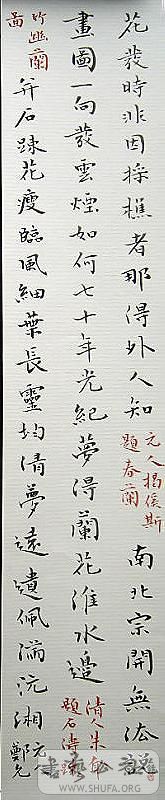 花發時非因採樵者那得外人知
元人揭傒斯
題春蘭
南北宗開無法
畫圖一向發雲煙如何七十年光紀夢得蘭花淮水邊
清人朱耷
題石濤
竹幽蘭
圖
并石踈花瘦臨風細葉長靈均清夢遠遺佩滿沅湘
鄭允
www.SHUFA.ORG